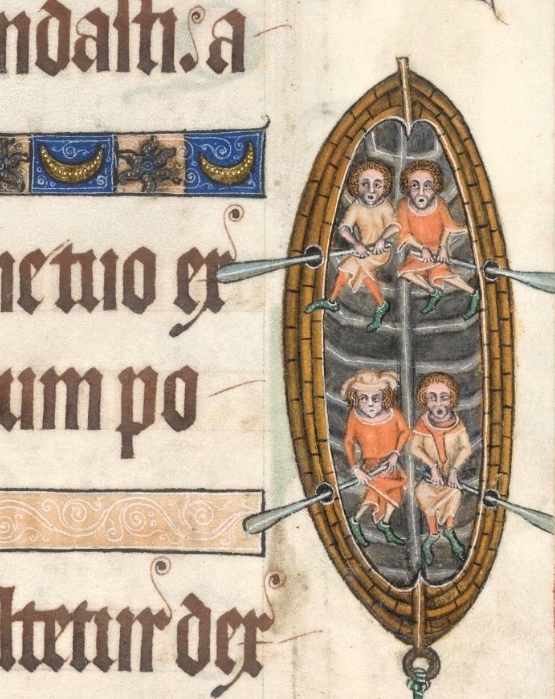 ndasti. a
ne tuo ex
um po
ltetur dex